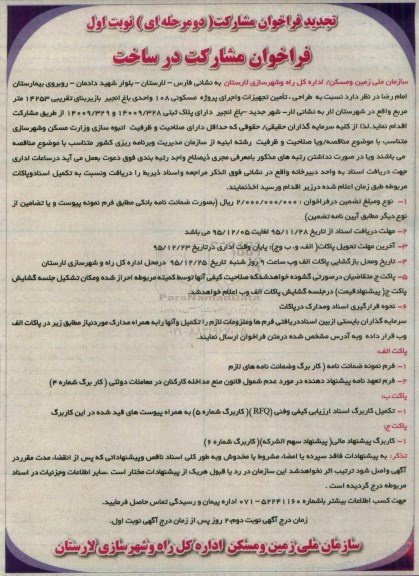 تجدید فراخوان مشارکت( دومرحله ای ) نوبت اول
فراخوان مشارکت در ساخت
سازمان ملی زمین ومسکن/ اداره کل راه وشهرسازی لارستان به نشانی فارس – لارستان – بلوار شهید دادمان – روبروی بیمارستان
امام رضا در نظر دارد نسبت به طراحی ، تأمین تجهیزات واجرای پروژه مسکونی ۱۰۸ واحدی باغ انجیر بازیربنای تقریبی ۱۴۲۵۳ متر
مربع واقع در شهرستان لار به نشانی لار– شهر جدید –باغ انجیر دارای پلاک ثبتی ۱۴۰۰۹/۳۲۸ و ۱۴۰۰۹/۳۲۹ از طریق مشارکت
اقدام نماید.لذا از کلیه سرمایه گذاران حقیقی/ حقوقی که حداقل دارای صلاحیت و ظرفیت انبوه سازی وزارت مسکن وشهرسازی
متناسب با موضوع مناقصه/ویا صلاحیت و ظرفیت رشته ابنیه از سازمان مدیریت وبرنامه ریزی کشور متناسب با موضوع مناقصه
می باشند ویا در صورت نداشتن رتبه های مذکور بامعرفی مجری ذیصلاح واجد رتبه بندی فوق دعوت بعمل می آید درساعات اداری
جهت دریافت اسناد به واحد دبیرخانه واقع در نشانی فوق الذکر مراجعه واسناد ذیربط را دریافت ونسبت به تکمیل اسنادوپاکات
مربوطه طبق زمان اعلام شده درزیر اقدام ورسید اخذنمایند.
۱– نوع ومبلغ تضمین درفراخوان : ۲/۰۰۰/۰۰۰/۰۰۰ ریال (بصورت ضمانت نامه بانکی مطابق فرم نمونه پیوست و یا تضامین از
نوع دیگر مطابق آیین نامه تضمین)
۲– مهلت دریافت اسناد از تاریخ ۹۵/۱۱/۲۸ لغایت ۹۵/۱۲/۰۵ می باشد
۳– آخرین مهلت تحویل پاکات( الف و، ب وج): پایان وقت اداری درتاریخ ۹۵/۱۲/۲۳
۴– تاریخ ومحل بازگشایی پاکات الف وب ساعت ۹ روز شنبه تاریخ ۹۵/۱۲/۲۵ درمحل اداره کل راه و شهرسازی لارستان
۵– پاکت ج متقاضیان درصورتی گشوده خواهدشدکه صلاحیت کیفی آنها توسط کمیته مربوطه احراز شده ومکان تشکیل جلسه گشایش
پاکت ج( پیشنهادقیمت) درجلسه گشایش پاکات الف وب اعلام خواهدشد.
۶– نحوه قرارگیری اسناد ومدارک درپاکات
سرمایه گذاران بایستی ازبین اسناددریافتی فرم ها وملزومات لازم را تکمیل وآنها رابه همراه مدارک موردنیاز مطابق زیر در پاکات الف
وب قرار داده وبه آدرس مشخص شده درمتن فراخوان ارسال نمایند.
پاکت الف:
۱– فرم نمونه ضمانت نامه ( کار برگ وضمانت نامه های لازم
۲– فرم تعهد نامه پیشنهاد دهنده در مورد عدم شمول قانون منع مداخله کارکنان در معاملات دولتی ( کار برگ شماره ۴)
پاکت ب:
۱– تکمیل کاربرگ اسناد ارزیابی کیفی وفنی (RFQ) (کاربرگ شماره ۵) به همراه پیوست های قید شده در این کاربرگ
پاکت ج:
۱– کاربرگ پیشنهاد مالی( پیشنهاد سهم الشرکه)( کاربرگ شماره ۶)
تذکر: به پیشنهادات فاقد سپرده یا امضا، مشروط یا مخدوش وبه طور کلی اسناد ناقص وپیشنهاداتی که پس از انقضاء مدت مقرردر
آگهی واصل شود ترتیب اثر نخواهدشد این سازمان در رد یا قبول هریک از پیشنهادات مختار است .سایر اطلاعات وجزئیات در اسناد
مربوطه درج گردیده است .
جهت کسب اطلاعات بیشتر باشماره ۵۲۲۴۱۱۶۰ – ۰۷۱ اداره پیمان و رسیدگی تماس حاصل فرمایید.
زمان درج آگهی نوبت دوم:۲ روز پس از زمان درج آگهی نوبت اول.
سازمان ملی زمین ومسکن اداره کل راه وشهرسازی لارستان